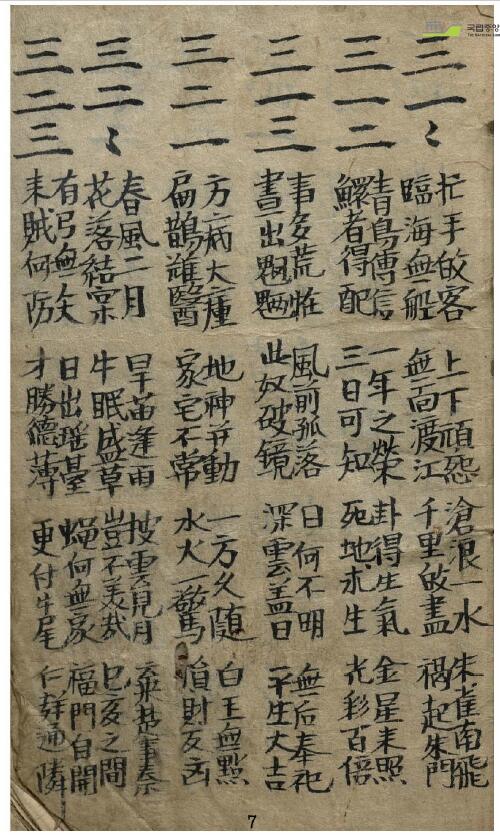 국립중앙
三一〻
忙手的客 上下頑怨 滄浪一水 朱雀南飛
臨海無船 無面渡江 千里的盡 禍起朱門
三一二
青鳥傳信 一年之榮 卦得生氣 金星来照
鰥者得配 三日可知 死地求生 光彩百倍
三一三
事多荒怪 風前孤落 日何不明 無后奉祀
晝出魍魎 此奴破鏡 深雲盖日 平生大吉
三二一
方病大瘇 地神并動 一方久随 白玉無點
扁鵲難醫 家宅不常 水火一驚 財反凶
三二〻
春風二月 旱苗逢雨 披雲見月 楚事秦
花落結宲 牛眠盛草 豈不美哉 巳亥之間
三二三
有弓無矢 日出瑶臺 蝇何無家 福門自開
来賊何防 才勝德薄 更付牛尾 仁通隣
7